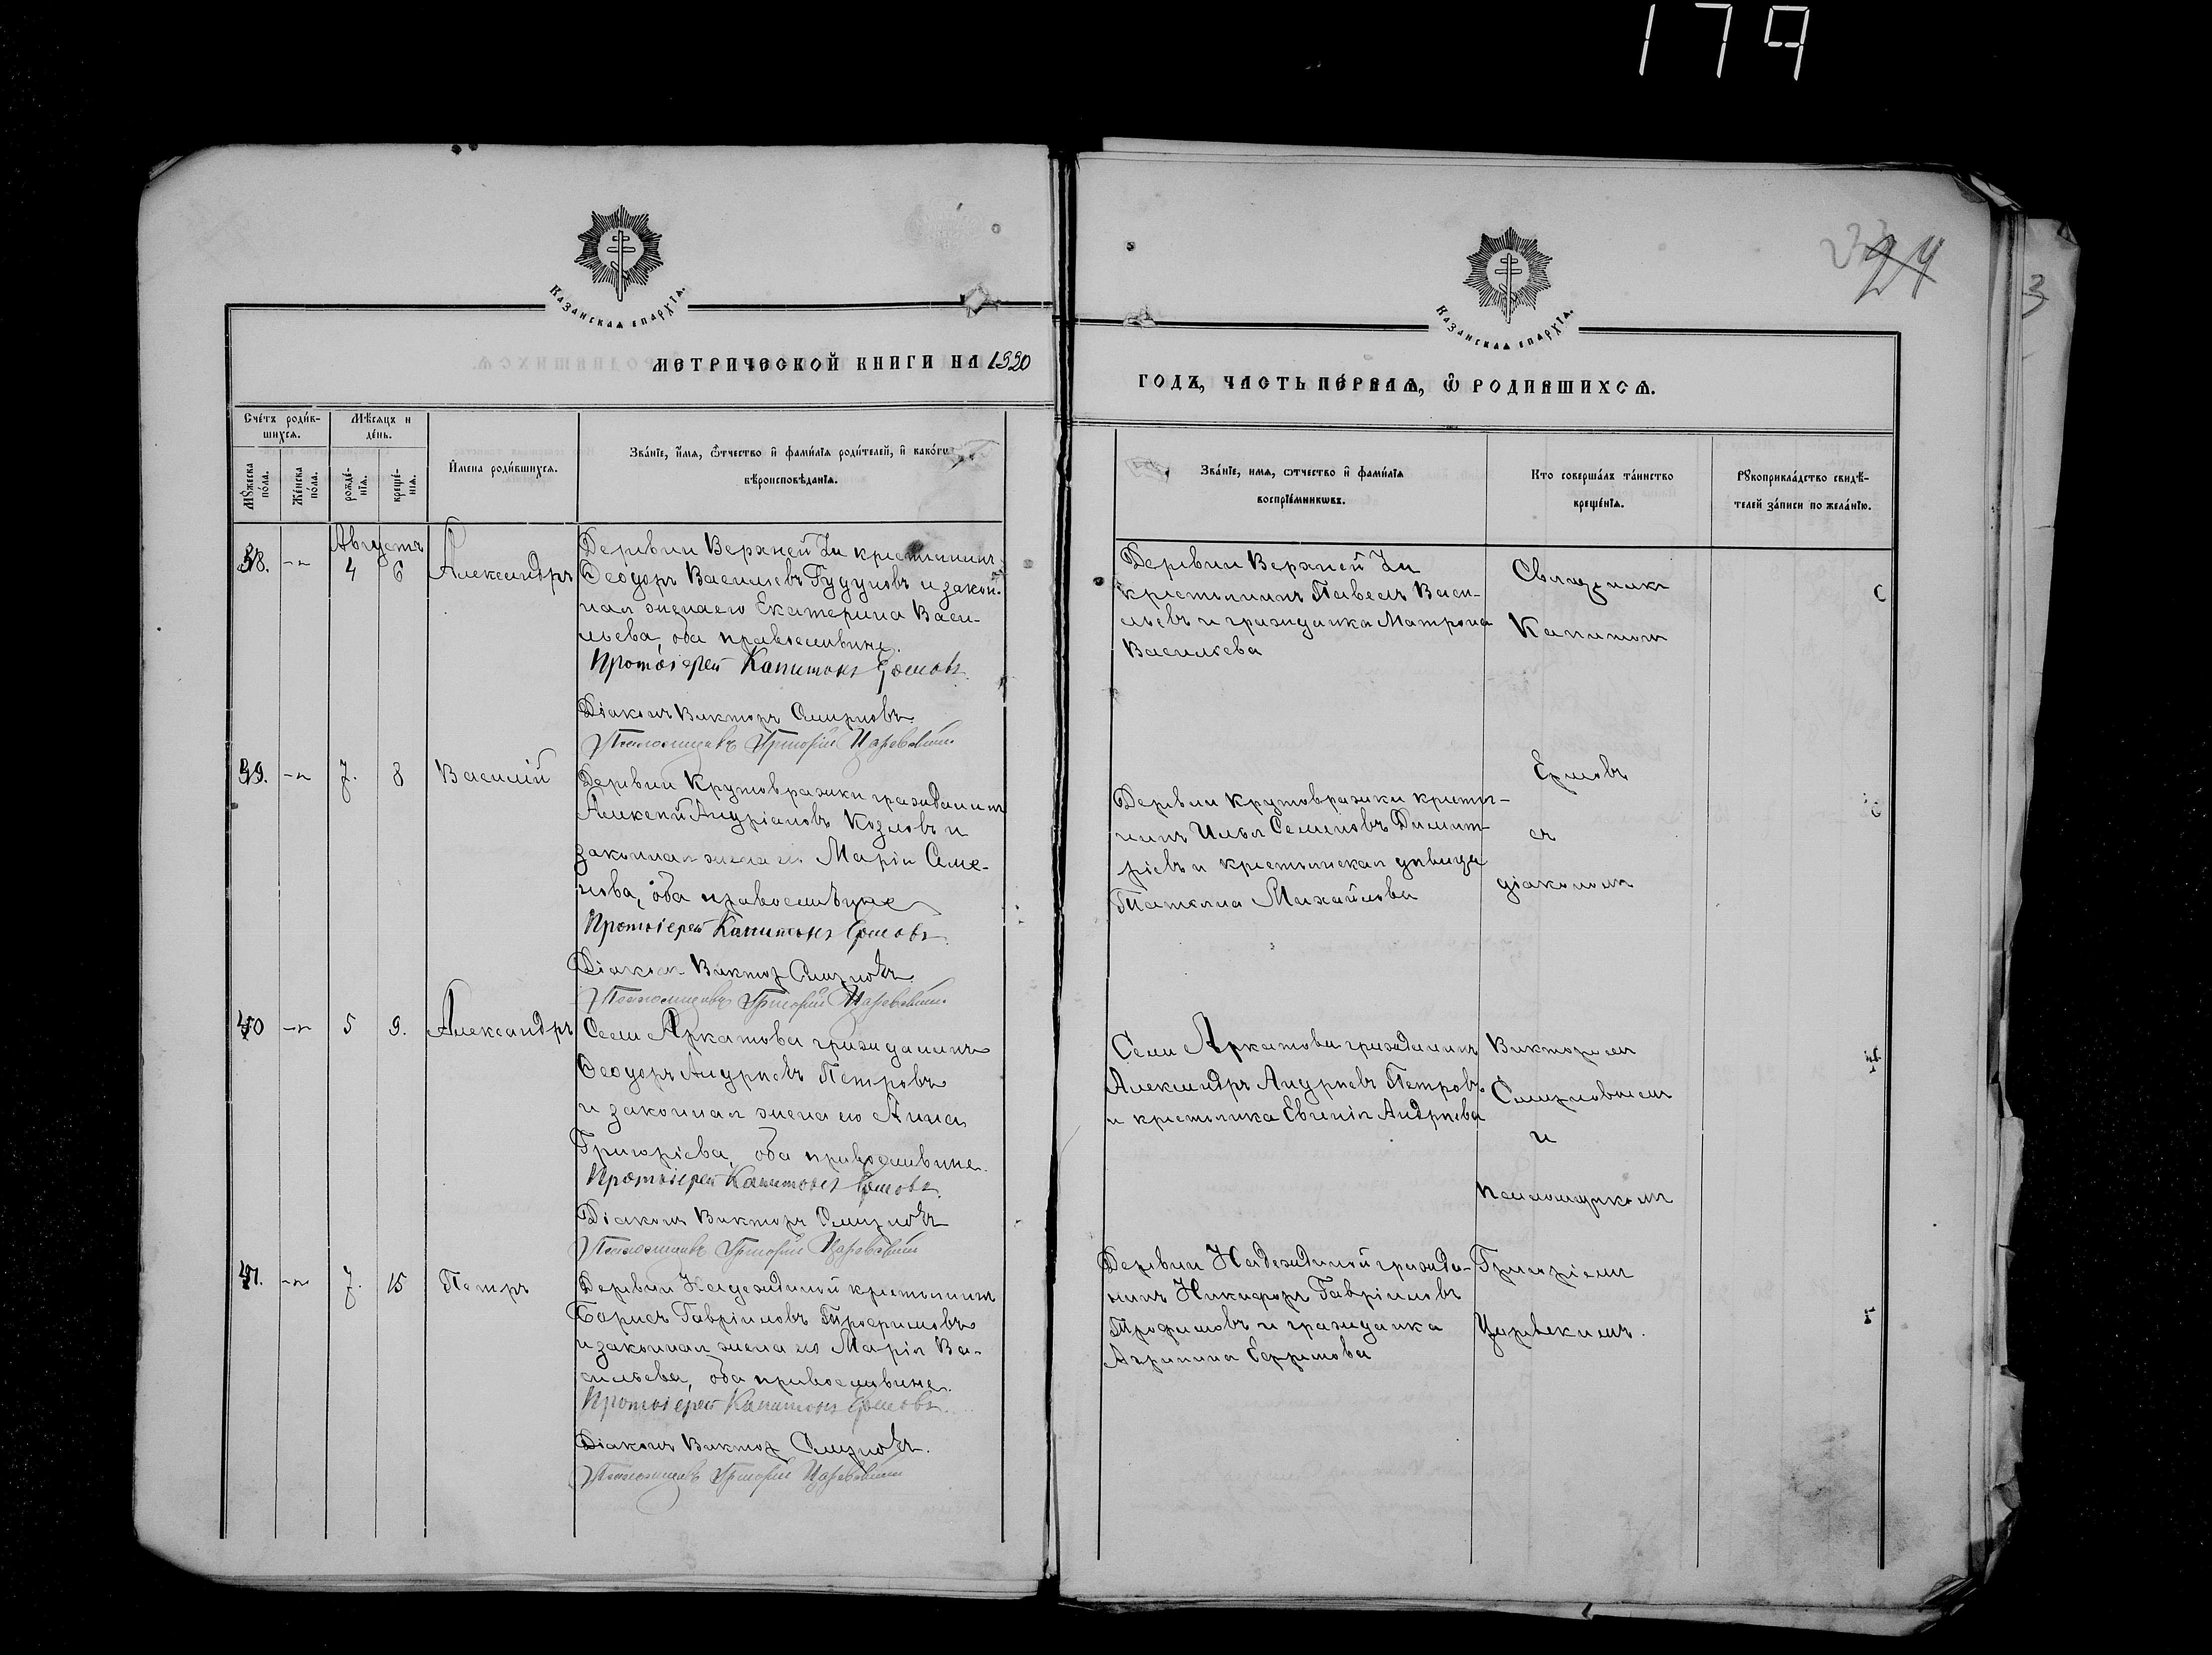 179
24
3
КАЗАНСКАЯ ЕПАРХІЯ.
МЕТРИЧЕСКОЙ КНИГИ НА 1920
Сче́тъ роди́в-
шихся.
Мѣсяцъ и
де́нь.
Мꙋжеска
по́ла.
Же́нска
по́ла.
рожде́-
нїѧ.
креще́-
нїѧ.
И҆мена роди́вшихся.
Зва́нїе, и҆́мя, ѻ҆́тчество и҆ фами́лїѧ роди́телей, и҆ како́гѡ
вѣроисповѣ́данїѧ.
Августъ
38. -"- 4 6 Александръ
Деревни Верхней крестьянинъ
Ѳеодоръ Васильевъ Гудуновъ и закон-
ная жена его Екатерина Васи-
льева, оба православные.
Протоіерей Капитонъ Ермовъ.
Діаконъ Викторъ Смирновъ
Псаломщикъ Григорій Царевскій
39. -"- 7. 8 Василій
Деревни Крутовражки гражданинъ
Алексѣй Андріановъ Козловъ и
законная жена его Марія Семе-
нова, оба православные
Протоіерей Капитонъ Ермовъ.
Діаконъ Викторъ Смирновъ
Псаломщикъ Григорій Царевскій
40 -"- 5 9. Александръ
Села Аркатова гражданинъ
Ѳеодоръ Андреевъ Петровъ
и законная жена его Анна
Григоріева, оба православные.
Протоіерей Капитонъ Ермовъ.
Діаконъ Викторъ Смирновъ
Псаломщикъ Григорій Царевскій
41. -"- 7. 15 Петръ
Деревни Надеждиной крестьянинъ
Борисъ Гавріиловъ Трофимовъ
и законная жена его Марія Ва-
сильева, оба православные.
Протоіерей Капитонъ Ермовъ.
Діаконъ Викторъ Смирновъ.
Псаломщикъ Григорій Царевскій
КАЗАНСКАЯ ЕПАРХІЯ.
ГОДЪ, ЧАСТЬ ПЕ́РВАѦ, Ѽ РОДИВШИХСѦ.
Зва́нїе, имя, ѻтчество и҆ фами́лїѧ
воспрїе́мникѡвъ.
Кто соверша́лъ та́инство
креще́нїѧ.
Рꙋкоприкла́дство свидѣ́-
телей за́писи по жела́нїю.
Деревни Верхней
крестьянинъ Павелъ Васи-
льевъ и гражданка Матрона
Васильева
Деревни Крутовражки крестья-
нинъ Илья Семеновъ Димит-
ріевъ и крестьянская дѣвица
Татьяна Михайлова
Села Аркатова гражданинъ
Александръ Андреевъ Петровъ
и крестьянка Евгенія Андреева
Деревни Надеждиной гражда-
нинъ Никифоръ Гавріиловъ
Трофимовъ и гражданка
Агрипина Ефимова
Священникъ
Капитонъ
Ермовъ
съ
діакономъ
Викторомъ
Смирновымъ
и
псаломщикомъ
Григоріемъ
Царевскимъ.